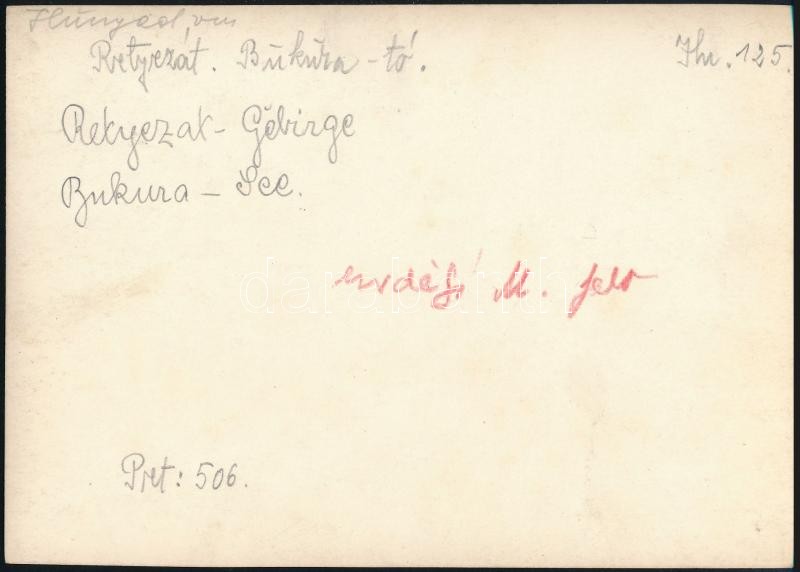 Hunyad vm
Retyezát. Bukura-tó. Thr. 125.
Rekyezak-Gebirge
Bukura-See.
erdélyi M. felv
Pret: 506.
darabanth